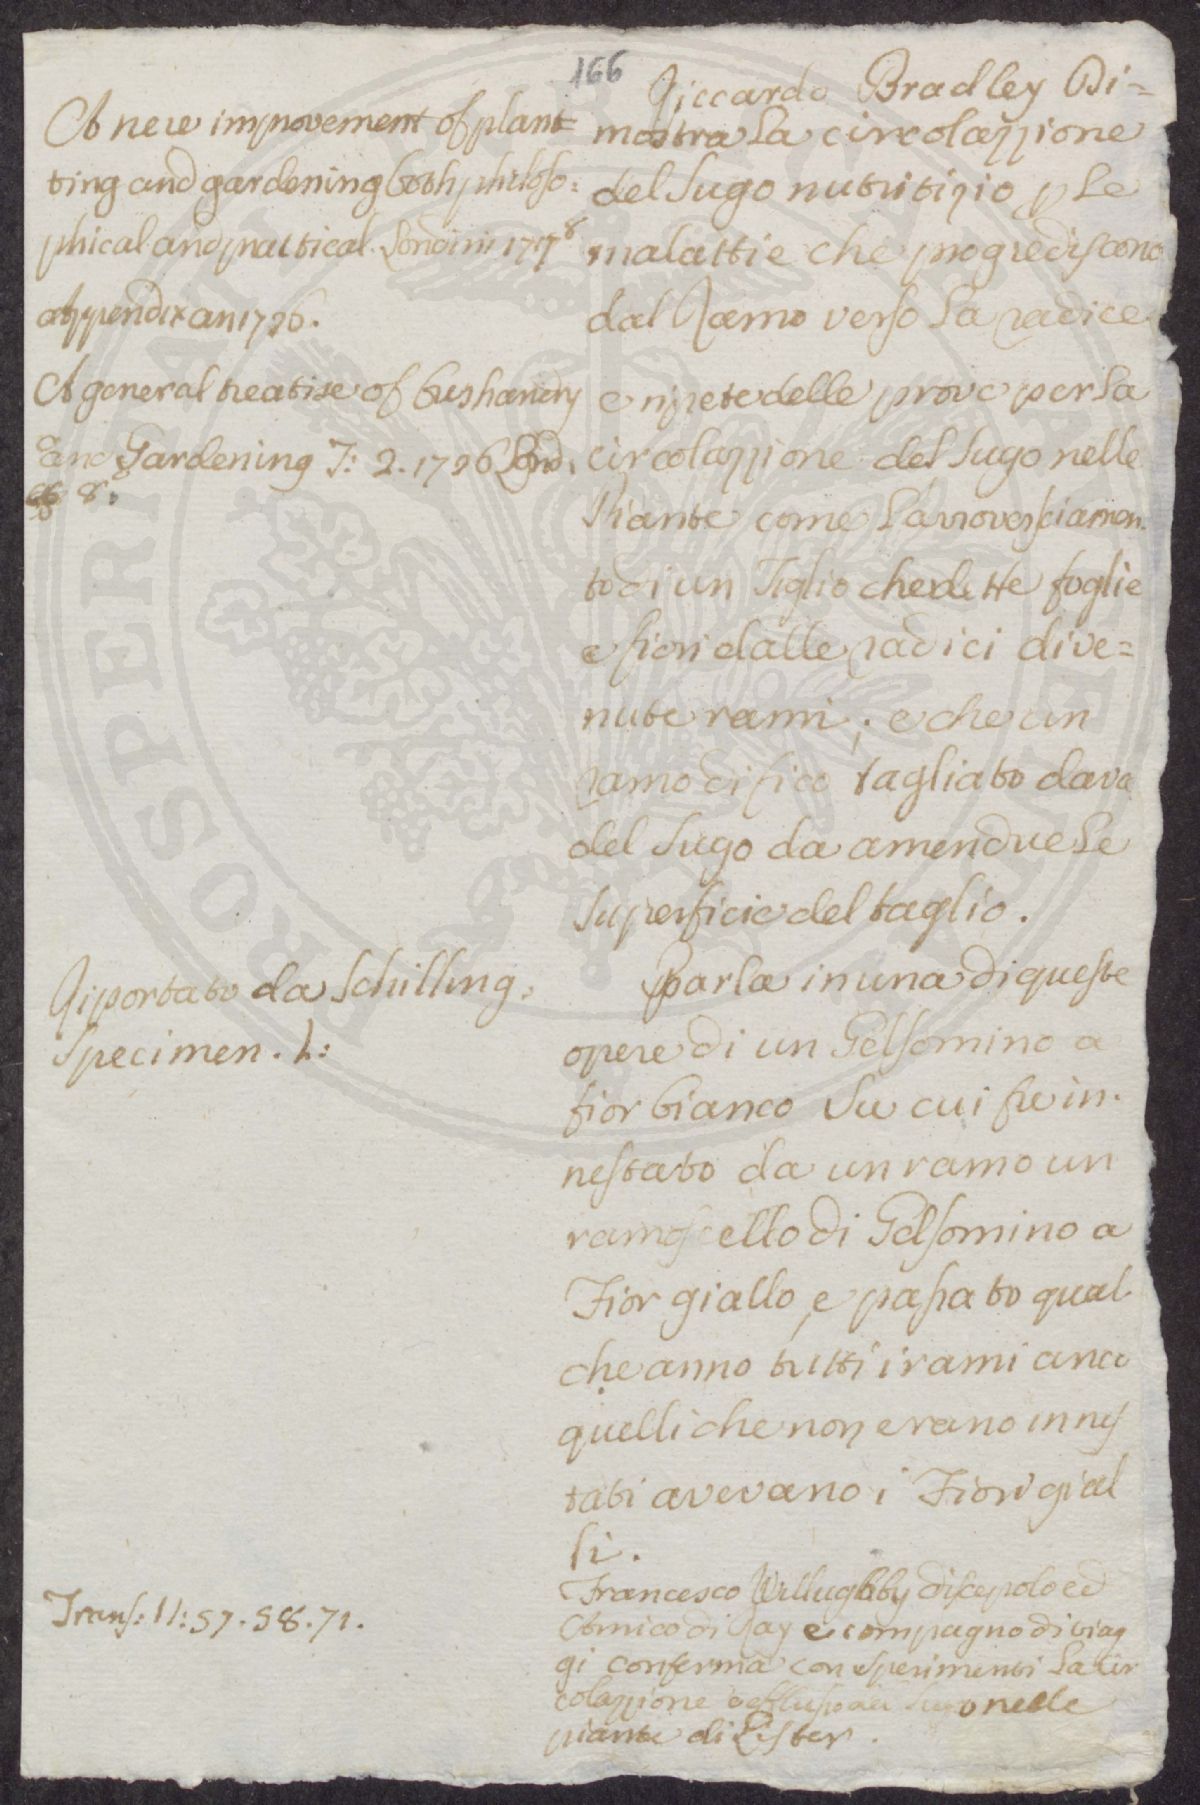 166
A new improvement of plant=
ting and gardening both philoso=
phical and practical. Londini 1717 8
appendix an 1726.
A general treatise of hushandry
and Gardening T: 2. 1726 Lond.
8:
Riportato da Schilling.
Specimen. L:
Trans: 11: 57. 58. 71.
Riccardo Bradley Di=
mostra la circolazzione
del sugo nutritizio p le
malattie che progrediscono
dal Ramo verso la radice
e ripete delle prove per la
circolazzione del sugo nelle
Piante come l'arrovesciamen.
to di un Tiglio che dette foglie
e fiori dalle radici dive=
nute rami; e che un
ramo di fico tagliato dava
del sugo da amendue le
superficie del taglio.
Parla in una di queste
opere di un Gelsomino a
fior bianco su cui fu in.
nestato da un ramo un
ramoscello di Gelsomino a
Fior giallo, e passato qual
che anno tutti i rami anco
quelli che non erano innes
tati avevano i Fiori gial
li.
Francesco Willughby discepolo ed
Amico di Ray e compagno di viag
gi conferma con sperimenti la cir
colazzione o efflusso del sugo nelle
piante di Lister.